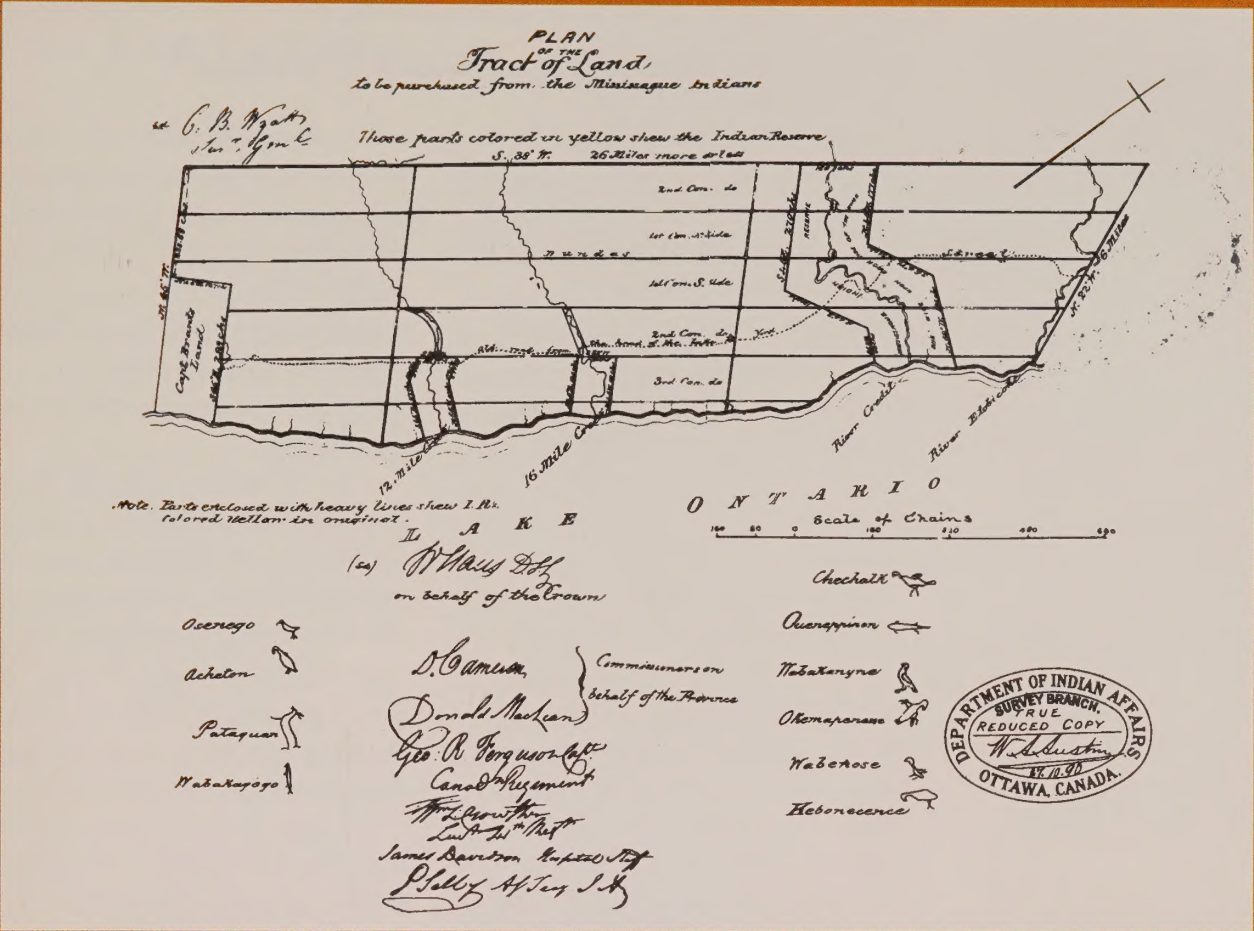 PLAN
OF THE
Tract of Land,
to be purchased from the Missisague Indians
C. B. Wyatt
Those parts colored in yellow shew the Indian Reserve
S. 38° W. 26 Miles more or less
2nd Con. do
1st Con. N. Side
Dundas
Street
1st Con. S. Side
2nd Con. do
York
old road from
the head of the Lake to
3rd Con. do
N. 45° W.
Capt Brants
Land
RESERVE
N. 22° W. 6 Miles
12 Mile Creek
16 Mile Creek
River Credit
River Etobicoke
Note. Parts enclosed with heavy lines shew I. Rs.
Colored Yellow in original.
LAKE ONTARIO
Scale of Chains
160 80 0 160 320 480 640
(sd)
on behalf of the Crown
Osenego
Acheton
Pataquan
Wabakagogo
D. Cameron
Donald MacLean
Commissioners on
behalf of the Province
Geo. R Ferguson Capt.
Canadn Regiment
James Davidson Hospital Staff
P Selby
Chechalk
Queneppinon
Wabakanyne
Okemapenesse
Wabenose
Kebonecence
DEPARTMENT OF INDIAN AFFAIRS
SURVEY BRANCH.
TRUE
REDUCED COPY
W. A. Austin
27.10.90
OTTAWA, CANADA.